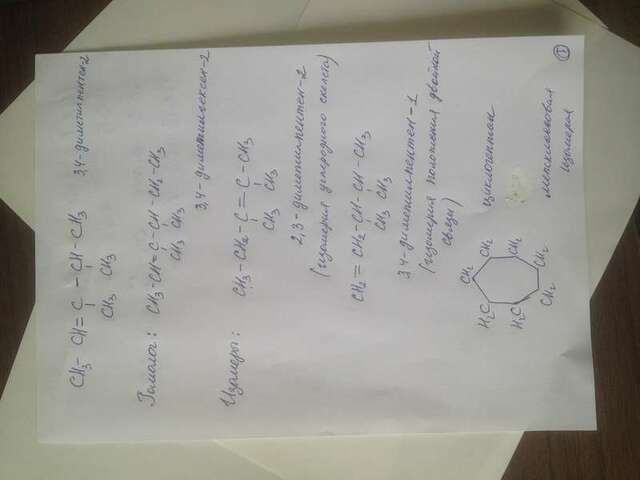 CH₃ - CH = C - CH - CH₃ 3,4-диметилпентен-2
CH₃ CH₃
Гомолог: CH₃-CH=C-CH-CH₂-CH₃
CH₃ CH₃
3,4-диметилгексен-2
Изомеры: CH₃-CH₂-C=C-CH₃
CH₃ CH₃
2,3-диметилпентен-2
(изомерия углеродного скелета)
CH₂=CH₂-CH-CH-CH₃
CH₃ CH₃
3,4-диметилпентен-1
(изомерия положения двойной
связи)
CH₂
H₂C CH₂ циклогептан
H₂C CH₂
CH₂ CH₂ межклассовая
изомерия
1